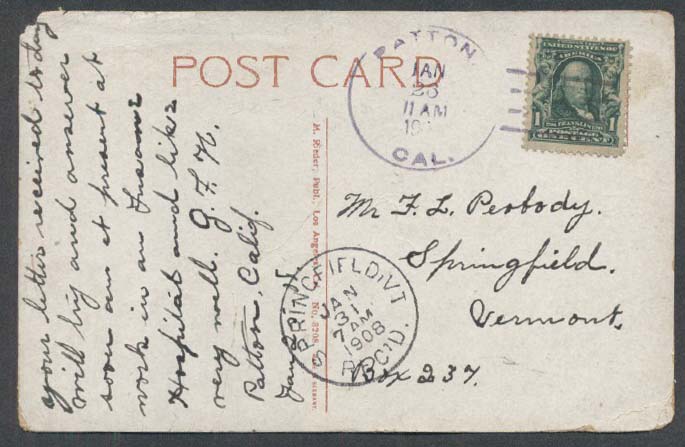 POST CARD
PATTON
JAN
11 AM
CAL.
UNITED STATES OF
AMERICA
FRANKLIN
1 POSTAGE 1
ONE CENT
your letter received today
will try and answer
soon am at present at
work in an Insane
Hospital and like
very well. G. F. H.
Patton, Calif.
M. Rieder, Publ., Los Angeles, No. 3208
GERMANY
SPRINGFIELD, VT
JAN
31
7 AM
1908
REC'D.
Mr F. L. Peabody.
Springfield.
Vermont.
Box 237.